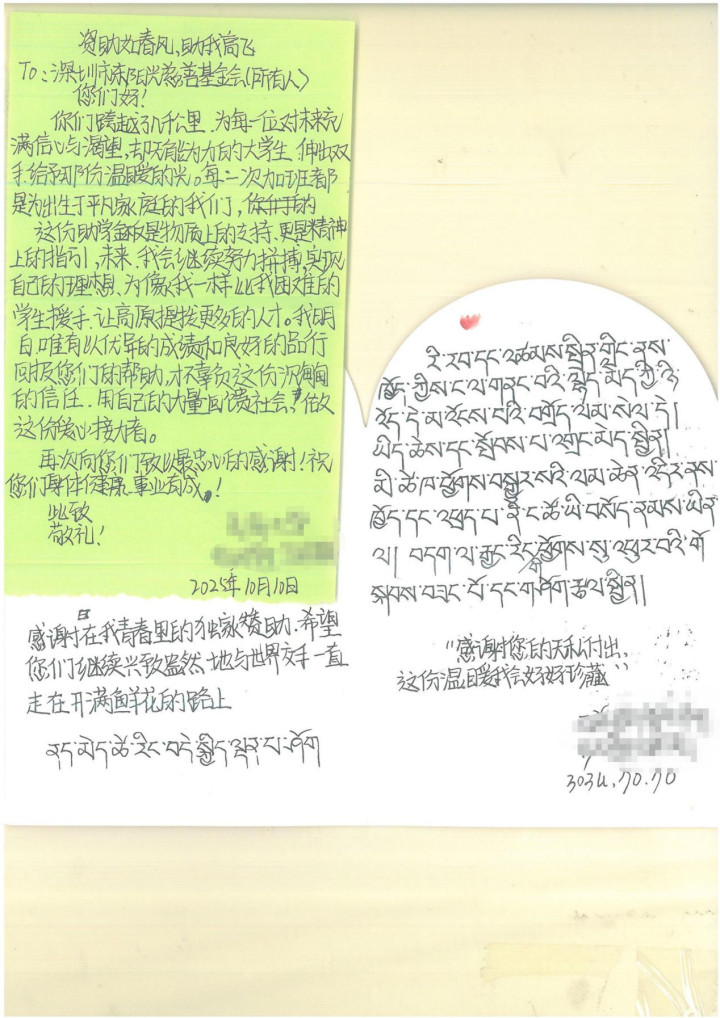 资助如春风,助我高飞
To:深圳市东阳兴慈善基金会(所有人)
您们好!
你们跨越数千公里,为每一位对未来充
满信心与渴望,却无能为力的大学生,伸出双
手,给予那份温暖的光。每一次加班都
是为出生于平凡家庭的我们,
这份助学金不仅是物质上的支持,更是精神
上的指引,未来,我会继续努力拼搏,实现
自己的理想,为像我一样比我困难的
学生援手,让高原提拔更多的人才。我明
白,唯有以优异的成绩和良好的品行
回报您们的帮助,才不辜负这份沉甸甸
的信任,用自己的力量回馈社会,做
这份爱心接力者。
再次向您们致以最忠心的感谢!祝
您们身体健康,事业有成。!
此致
敬礼!
2025年10月10日
感谢在我青春里的独家赞助,希望
您们继续兴致盎然地与世界交手,一直
走在开满鲜花的路上
ནད་མེད་ཚེ་རིང་བདེ་སྐྱིད་ལྡན་པར་ཤོག
རི་རབ་དང་འཚམས་སྤྲིན་གླིང་ནས་
ཁྱོད་ཀྱིས་ང་ལ་གནང་བའི་
འོད་དེ་མ་འོངས་བའི་བགྲོད་ལམ་སེལ་དེ།
ཡིད་ཆེས་དང་སྤོབས་པ་འགྲང་མེད་སྤྲིན།
མི་ཚེ་ཁ་ཕྱོགས་བསྒྱུར་སའི་ལམ་ཆེན་འདིར་ནས་
ཁྱོད་དང་འཕྲད་པ་ནི་ང་ཚོ་ཡི་བསོད་ནམས་ཡིན་
ལ། བདག་ལ་རྒྱང་རིང་ཕྱོགས་སུ་འཕུར་བའི་གོ་
སྐབས་བཟང་པོ་དང་གཤོག་རྩལ་སྤྲིན།
“感谢您的无私付出,
这份温暖我会好好珍藏”
༢༠༢༥.༡༠.༡༠